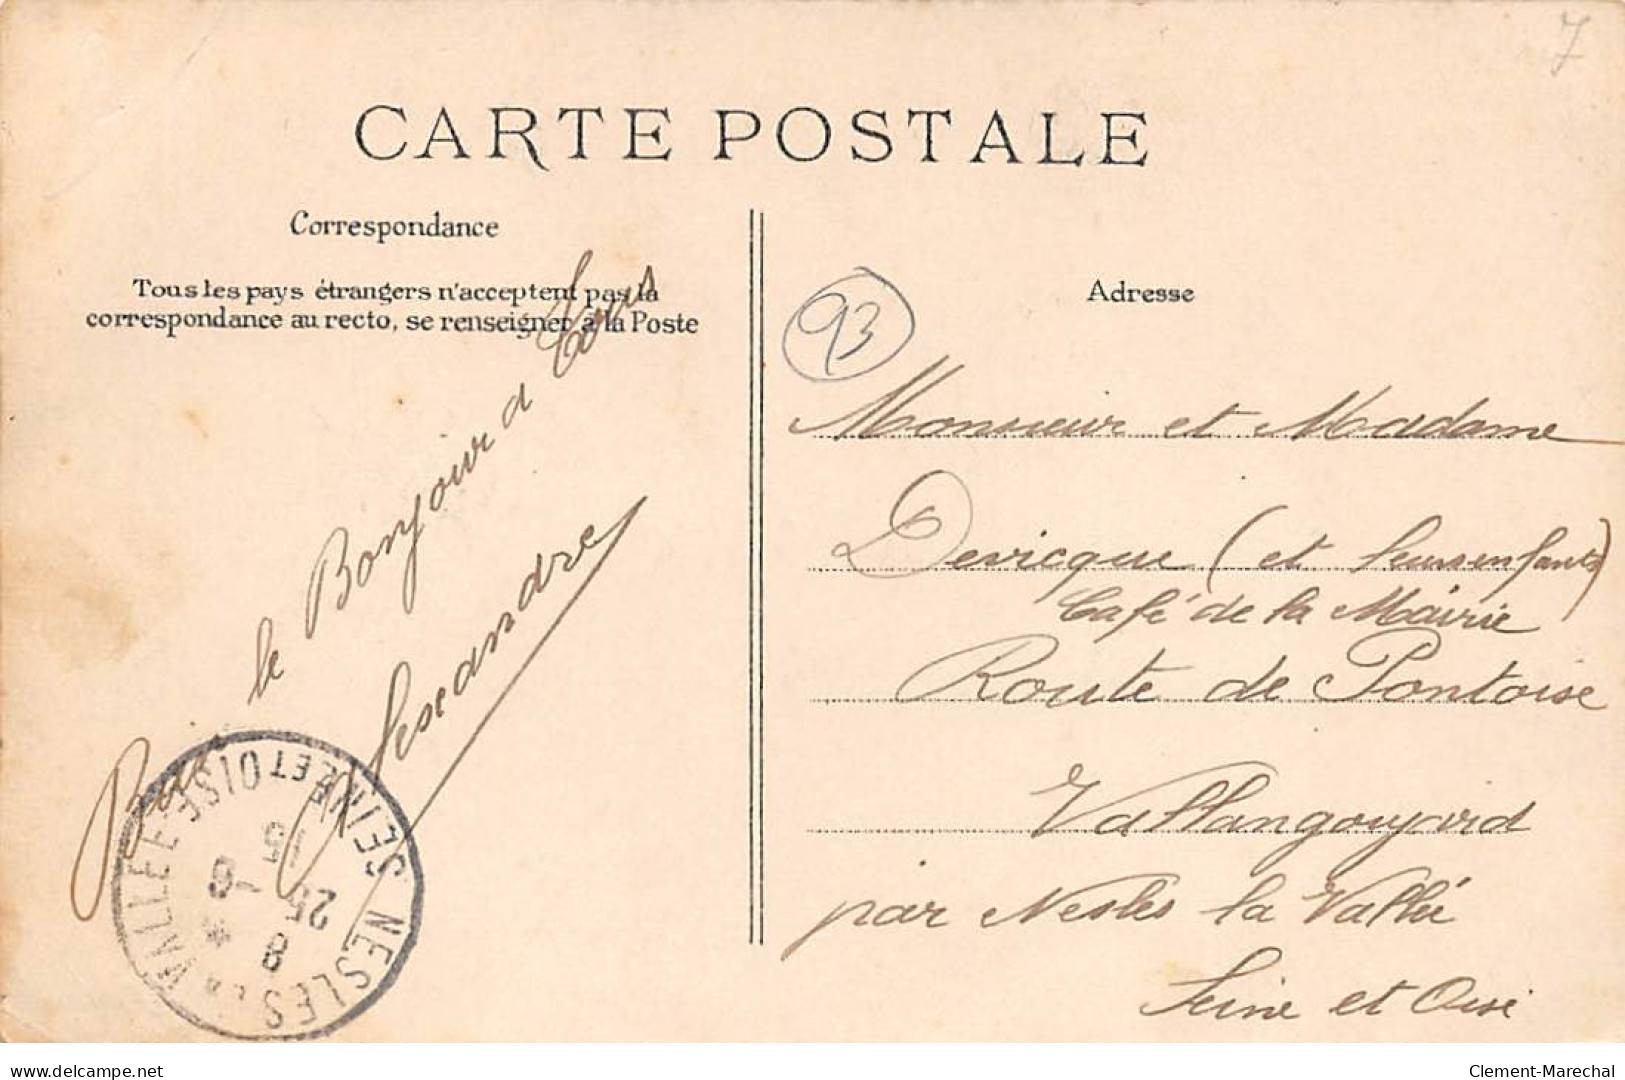 7
CARTE POSTALE
Correspondance
Tous les pays étrangers n'acceptent pas la
correspondance au recto, se renseigner à la Poste
le Bonjour a Tous
NESLES LA VALLEE SEINE ET OISE
8
25 - 5
Adresse
93
Monsieur et Madame
Devicque (et leurs enfants)
Café de la Mairie
Route de Pontoise
Vallangoujard
par Nesles la Vallée
Seine et Oise
delcampe.net
Clement-Marechal